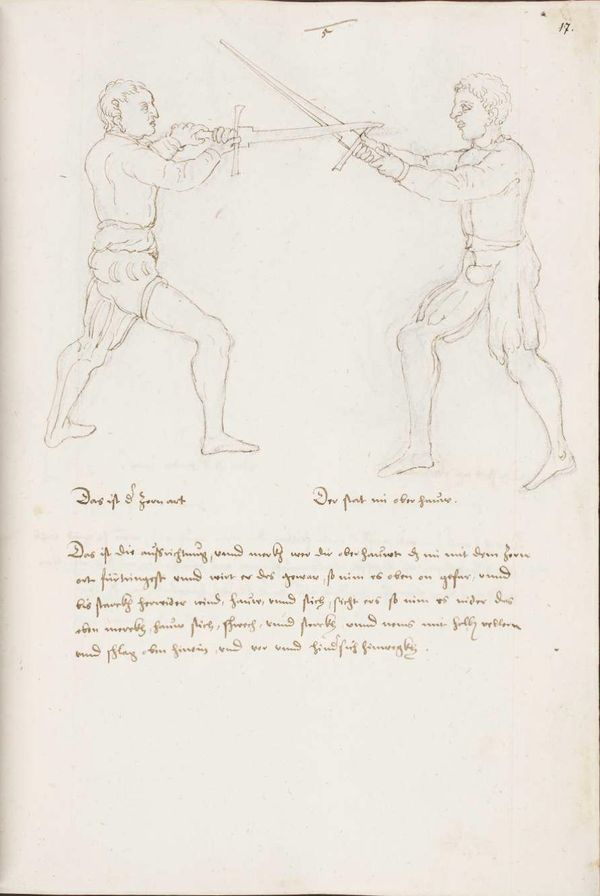 5
17.
Das ist dʳ Zornort
Der stat im ober hauw.
Das ist die aussrichtung, vnnd merck wer dir oberhauwet dz im mit dem Zorn
ort fürtringest vnnd wirt er des gewar, so nim es oben on gefar, vnnd
bis starckh herwider wind, hauw, vnnd stich, sicht ers so nim es nider das
eben merckh, hauw stich, vnnd sterckh vnnd nems mit
vnnd schlag oben hinein, vnd vor vnnd hindʳsich hinwegkh.